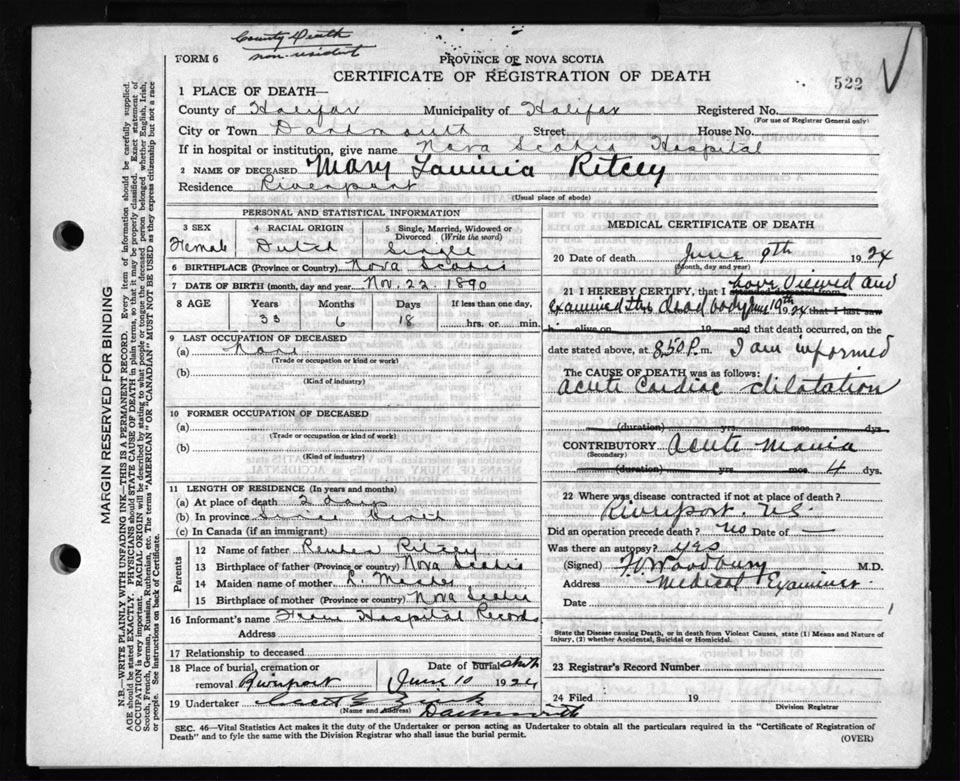 County Death
non-resident
FORM 6
PROVINCE OF NOVA SCOTIA
CERTIFICATE OF REGISTRATION OF DEATH
522
1 PLACE OF DEATH—
County of Halifax Municipality of Halifax Registered No.
(For use of Registrar General only)
City or Town Dartmouth Street House No.
If in hospital or institution, give name Nova Scotia Hospital
2 NAME OF DECEASED Mary Lavinia Ritcey
Residence Riverport
(Usual place of abode)
PERSONAL AND STATISTICAL INFORMATION
3 SEX 4 RACIAL ORIGIN 5 Single, Married, Widowed or
Divorced (Write the word)
Female Dutch Single
6 BIRTHPLACE (Province or Country) Nova Scotia
7 DATE OF BIRTH (month, day and year) Nov. 22. 1890
8 AGE Years Months Days If less than one day,
33 6 18 hrs. or min.
9 LAST OCCUPATION OF DECEASED
(a) None
(Trade or occupation or kind of work)
(b)
(Kind of industry)
10 FORMER OCCUPATION OF DECEASED
(a)
(Trade or occupation or kind of work)
(b)
(Kind of industry)
11 LENGTH OF RESIDENCE (In years and months)
(a) At place of death 2 days
(b) In province Since Birth
(c) In Canada (if an immigrant)
Parents
12 Name of father Reuben Ritcey
13 Birthplace of father (Province or country) Nova Scotia
14 Maiden name of mother R.
15 Birthplace of mother (Province or country) Nova Scotia
16 Informant's name From Hospital Records
Address
17 Relationship to deceased
18 Place of burial, cremation or Date of burial
removal Riverport June 10 1924
19 Undertaker
(Name and Address) Dartmouth
MEDICAL CERTIFICATE OF DEATH
20 Date of death June 9th 1924
(Month, day and year)
21 I HEREBY CERTIFY, that I have viewed and
attended deceased from
examined the dead body June 19th 1924 that I last saw
h alive on 19 and that death occurred, on the
date stated above, at 8,50 P.m. I am informed
The CAUSE OF DEATH was as follows:
Acute Cardiac dilatation
(duration) yrs. mos. dys.
CONTRIBUTORY Acute Mania
(Secondary)
(duration) yrs. mos. 4 dys.
22 Where was disease contracted if not at place of death?
Riverport. N.S.
Did an operation precede death? no Date of —
Was there an autopsy? yes
(Signed) Woodbury M.D.
Address Medical Examiner
Date
State the Disease causing Death, or in death from Violent Causes, state (1) Means and Nature of
Injury, (2) whether Accidental, Suicidal or Homicidal.
23 Registrar's Record Number
24 Filed 19
Division Registrar
SEC. 46—Vital Statistics Act makes it the duty of the Undertaker or person acting as Undertaker to obtain all the particulars required in the "Certificate of Registration of
Death" and to fyle the same with the Division Registrar who shall issue the burial permit.
(OVER)
MARGIN RESERVED FOR BINDING
N.B.—WRITE PLAINLY WITH UNFADING INK—THIS IS A PERMANENT RECORD. Every item of information should be carefully supplied.
AGE should be stated EXACTLY. PHYSICIANS should STATE CAUSE OF DEATH in plain terms, so that it may be properly classified. Exact statement of
OCCUPATION is very important. RACIAL ORIGIN will be described by stating to what people or tongue the deceased person belonged whether English, Irish,
Scotch, French, German, Russian, Ruthenian, etc. The terms "AMERICAN" OR "CANADIAN" MUST NOT BE USED as they express citizenship but not a race
or people. See instructions on back of Certificate.